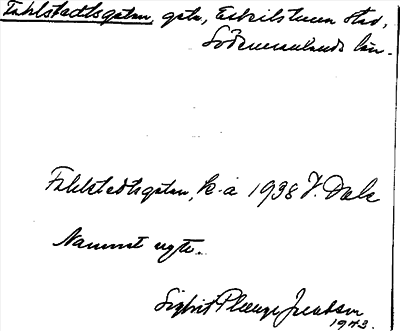 Fahlstedtsgatan, gata, Eskilstuna stad,
Södermanlands län.
Fahlstedtsgatan, k. a 1938 J. Dale
Namnet utgår.
Sigbrit Plænge Jacobson
1943.